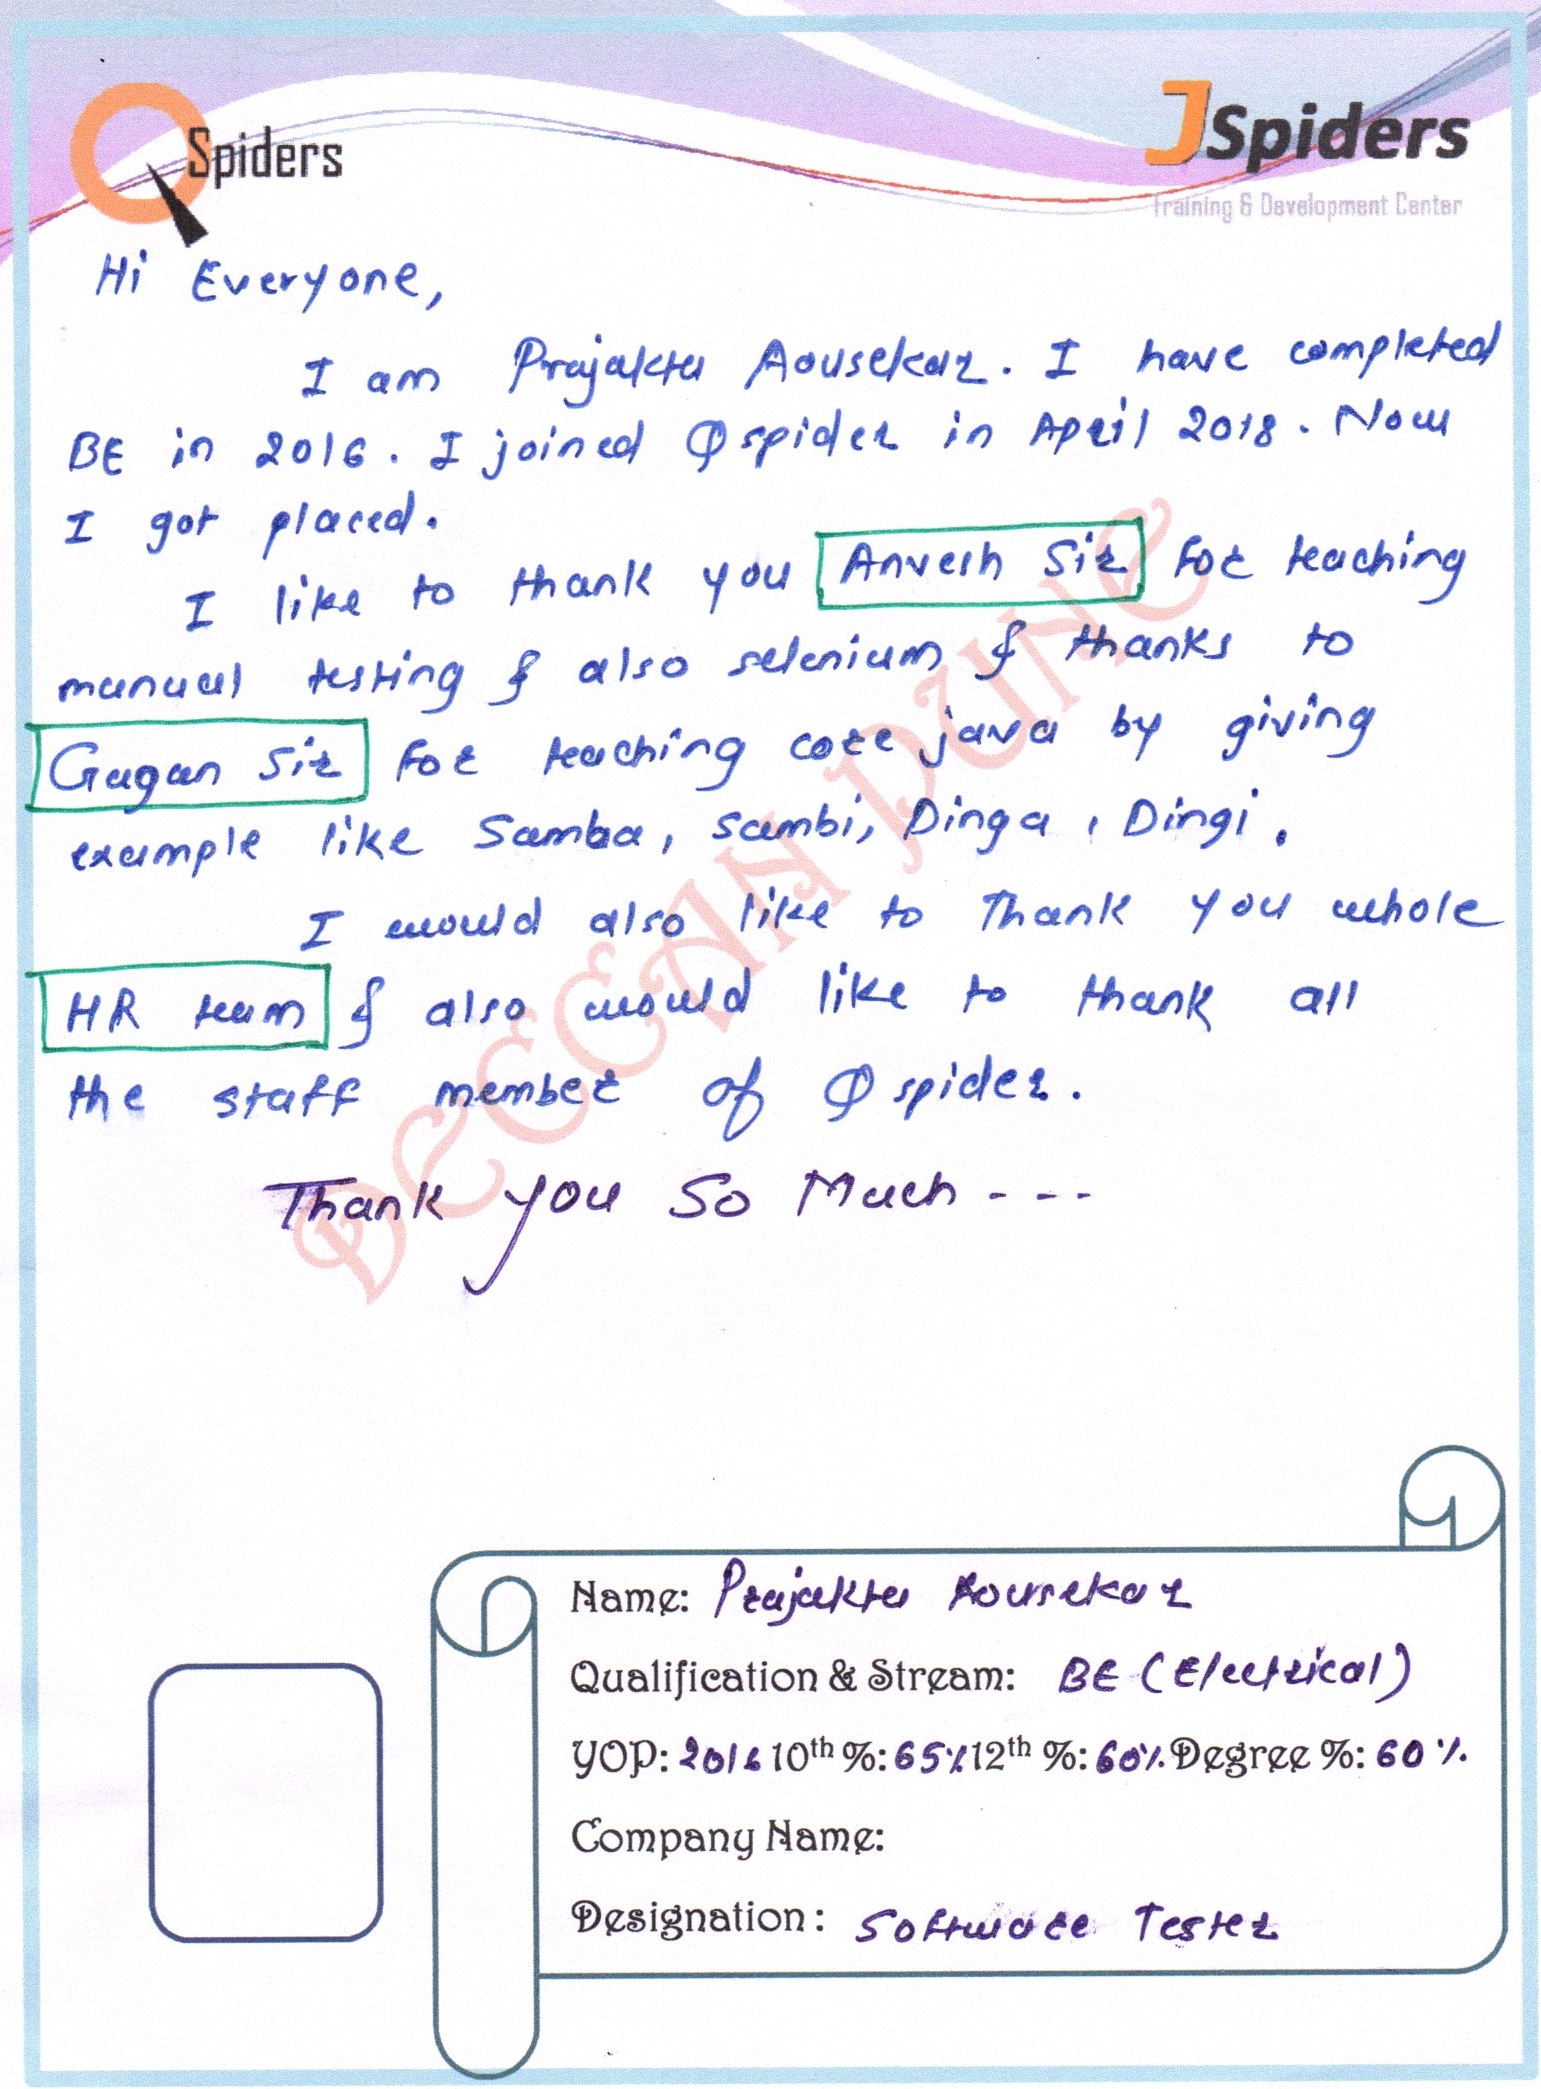 QSpiders
JSpiders
Training & Development Center
Hi Everyone,
I am Prajakta Aousekar. I have completed
BE in 2016. I joined Qspider in April 2018. Now
I got placed.
I like to thank you Anvesh Sir for teaching
manual testing & also selenium & thanks to
Gagan Sir for teaching core java by giving
example like Samba, sambi, Dinga, Dingi.
I would also like to Thank you whole
HR team & also would like to thank all
the staff member of Qspider.
Thank you So Much ---
DECCAN PUNE
Name: Prajakta Aousekar
Qualification & Stream: BE (Electrical)
YOP: 2016 10th %: 65% 12th %: 60% Degree %: 60 %
Company Name:
Designation: Software Tester